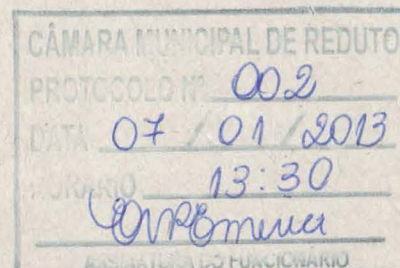 CÂMARA MUNICIPAL DE REDUTO
PROTOCOLO Nº 002
DATA 07 / 01 / 2013
HORÁRIO 13:30
ASSINATURA DO FUNCIONÁRIO